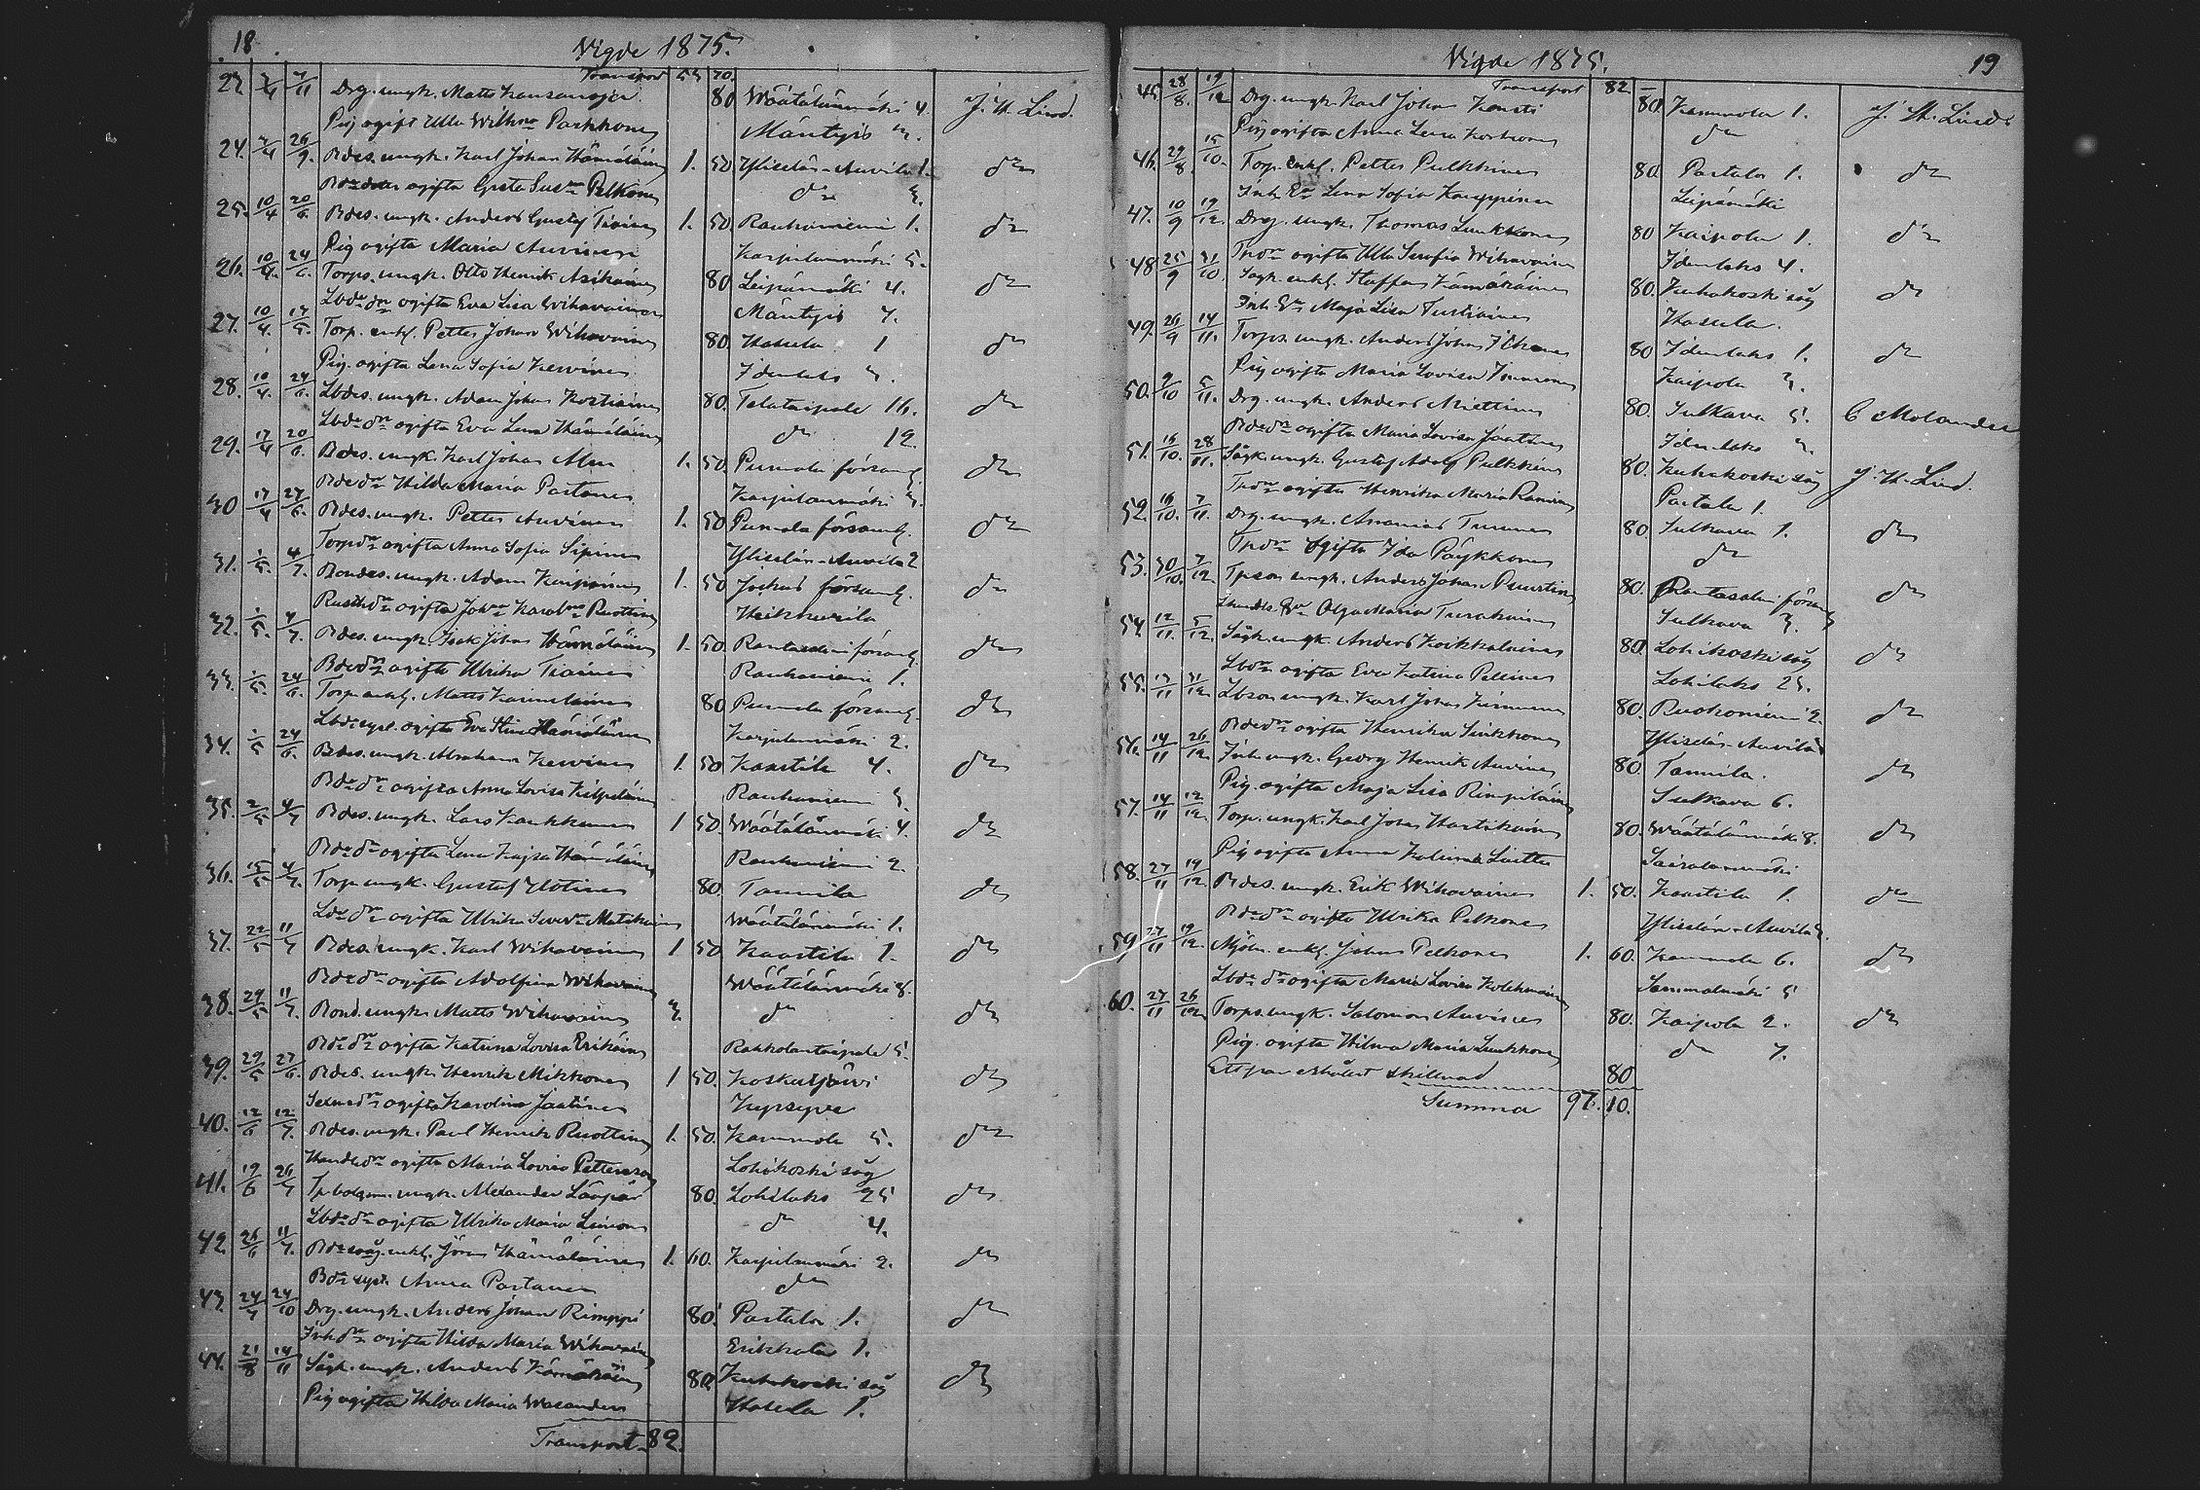 18
Vigde 1875.
Transport 55 70.
23. 3/4 7/11 Drg. ungk. Matts Kansanoja 80 Wäätälänmäki 4. J. H. Lind.
Pig ogift Ulla Wilhna Parkkonen Mäntyis 3.
24. 3/4 26/9. Bdes. ungk. Karl Johan Hämäläinen 1. 50. Yliselän-Auvila 1. do
ogifta Greta Susna Pelkonen do 3.
25. 10/4 20/6. Bdes. ungk. Anders Gustaf Tiainen 1. 50. Rauhaniemi 1. do
Pig ogifta Maria Auvinen Karjulanmäki 5.
26. 10/4. 24/6. Torps. ungk. Otto Henrik Asikainen 80 Leipämäki 4. do
Lbdr dr ogifta Eva Lisa Wihavainen Mäntyis 7.
27. 10/4. 17/5. Torp. enkl. Petter Johan Wihavainen 80. Hasula 1 do
Pig. ogifta Lena Sofia Kervinen Idenlaks 3.
28. 10/4. 24/6. Lbdes. ungk. Adam Johan Kostiainen 80. Telataipale 16. do
Lbdr dr ogifta Eva Lena Hämäläinen do 12.
29. 17/4 20/6. Bdes. ungk. Karl Johan 1. 50. Pumala församl. do
Bdedr Hilda Maria Partanen Karjulanmäki 3.
30 17/4 27/6. Bdes. ungk. Petter Auvinen 1. 50 Pumala församl. do
Torpdr ogifta Anna Sofia Sipinen Yliselän-Auvila 2
31. 1/5. 4/7. Bondes. ungk. Adam 1. 50 Jockas församl. do
ogifta Johna Karolna Ruottinen Heikkurila
32. 1/5. 4/7. Bdes. ungk. Isak Johan Hämäläinen 1. 50. församl. do
Bdedr ogifta Ulrika Tiainen Rauhaniemi 1.
33. 1/5. 24/6. Torp enkl. Matts 80 Pumala församl. do
ogifta Hämäläinen Karjulanmäki 2.
34. 1/5 24/6. Bdes. ungk. Abraham Kervinen 1. 50 Kaartila 4. do
Bdr dr ogifta Anna Lovisa Kilpeläinen Rauhaniemi 3.
35. 2/5 4/7 Bdes. ungk. Lars Kaukkanen 1 50. Wäätälänmäki 4. do
Bdr dr ogifta Lena Kajsa Hämäläinen Rauhaniemi 2.
36. 15/5 4/7. Torp ungk. Gustaf 80. Tannila do
Ldr dr ogifta Ulrika Matikainen Wäätälänmäki 1.
37. 22/5 11/7 Bdes. ungk. Karl Wihavainen 1 50 Kaartila 1. do
Bdedr ogifta Adolfina Wihavainen Wäätälänmäki 8.
38. 29/5 11/7. Bond. ungk. Matts Wihavainen 3. do do
Bdr dr ogifta Katrina Lovisa Erikäinen Rakkolantaipale 5.
39. 29/5 27/6. Bdes. ungk. Henrik Mikkonen 1 50. Koskutjärvi do
ogifta Karolina Jaatinen Kyrsyvä
40. 12/6 12/7. Bdes. ungk. Paul Henrik Ruottinen 1. 50. Kammola 5. do
Handl. dr ogifta Maria Lovisa Petterson Lohikoski såg
41. 19/6 26/7 ungk. Alexander 80. Lohilaks 25 do
Lbdr dr ogifta Ulrika Maria Simonen do 4.
42. 26/6 11/7. enkl. Jöran Hämäläinen 1. 60. Karjulanmäki 2. do
Anna Partanen do
43. 24/7 24/10 Drg. ungk. Anders Johan Rimppi 80. Partala 1. do
Inh. dr ogifta Hilda Maria Wihavainen Erikkala 1.
44. 21/8 14/11 Sågk. ungk. Anders Kämäräinen 80. Kuhakoski såg do
Pig ogifta Hilda Maria Wasander Hasula 1.
Transport 82.
Vigde 1875.
19
Transport 82 —
45. 28/8. 19/12 Drg. ungk. Karl Johan Kensti 80. Kammola 1. J. H. Lind.
Pig ogifta Anna Lena Korhonen do
46. 29/8. 15/10. Torp. enkl. Petter Pulkkinen 80. Partala 1. do
Inh. Ea Lena Sofia Kauppinen Leipämäki
47. 10/9 19/12. Drg. ungk. Thomas Luukkonen 80 Kaipola 1. do
Tpdr ogifta Ulla Serafia Wihavainen Idenlaks 4.
48 25/9 31/10. Sågk. enkl. Staffan Kämäräinen 80. Kuhakoski såg do
Inh. Ea Maja Lisa Tustiainen Hasula.
49. 26/9 14/11. Torps. ungk. Anders Johan Ikonen 80 Idenlaks 1. do
Pig ogifta Maria Lovisa Immonen Kaipola 3.
50. 9/10 5/11. Drg. ungk. Anders Miettinen 80. Sulkava 5. C Molander
Bdedr ogifta Maria Lovisa Jaatinen Idenlaks 3.
51. 16/10. 28/11. Sågk. ungk. Gustaf Adolf Pulkkinen 80. Kuhakoski såg J. H. Lind.
Tpdr ogifta Henrika Maria Partala 1.
52. 16/10. 7/11. Drg. ungk. Ananias Turunen 80. Sulkava 1. do
Tpdr ogifta Ida Päykkonen do
53. 30/10. 7/12. Tpson ungk. Anders Johan Puustinen 80. Rantasalmi församl. do
Olga Maria Turakainen Sulkava 3.
54. 12/11. 5/12. Sågk. ungk. Anders Koikkalainen 80. Lohikoski såg do
Lbdr ogifta Eva Katrina Pellinen Lohilaks 25.
55. 13/11 31/12. Lbson ungk. Karl Johan Kinnunen 80. Ruokoniemi 2. do
Bdedr ogifta Henrika Sirkkonen Yliselän-Auvila
56. 14/11 26/12. Inh. ungk. Georg Henrik Auvinen 80. Tannila. do
Pig. ogifta Maja Lisa Rimpiläinen Sulkava 6.
57. 14/11 12/12. Torp. ungk. Karl Johan Hartikainen 80. Wäätälänmäki 8. do
Pig ogifta Anna Katrina
58. 27/11 19/12. Bdes. ungk. Erik Wihavainen 1. 50. Kaartila 1. do
Bdedr ogifta Ulrika Pelkonen Yliselän-Auvila
59 27/11 19/12. Mjöln. enkl. Johan Pelkonen 1. 60. Kammola 6. do
Lbdr dr ogifta Maria Lovisa Kolehmainen Sammalmäki 5
60. 27/11 26/12. Torps. ungk. Salomon Auvinen 80. Kaipola 2. do
Pig. ogifta Hilma Maria Luukkonen do 7.
Ett par skillnad 80
Summa 97. 10.